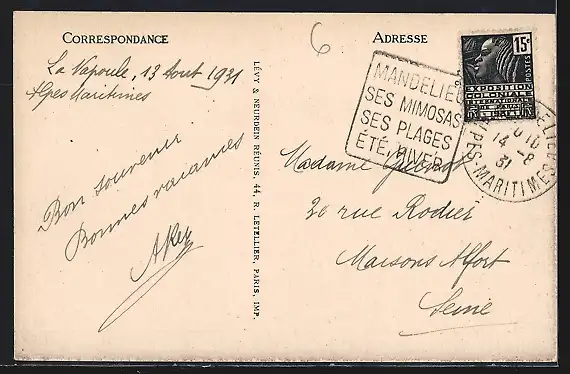 CORRESPONDANCE
La Napoule, 13 Aout 1931
Alpes Maritimes
Bon souvenir
Bonnes vacances
LÉVY & NEURDEIN RÉUNIS, 44, R. LETELLIER, PARIS, IMP.
6
ADRESSE
MANDELIEU
SES MIMOSAS
SES PLAGES
ÉTÉ, HIVER
15c
POSTES
EXPOSITION
COLONIALE
INTERNATIONALE
14 -8
31
ALPES-MARITIMES
Madame
30 rue Rodier
Maisons Alfort
Seine